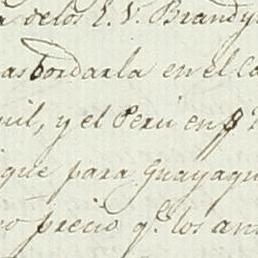 a delos E. V. Brandy
asbordarla en el Ca
uil, y el Peru en
ique para Guayaqu
o precio q.e los an